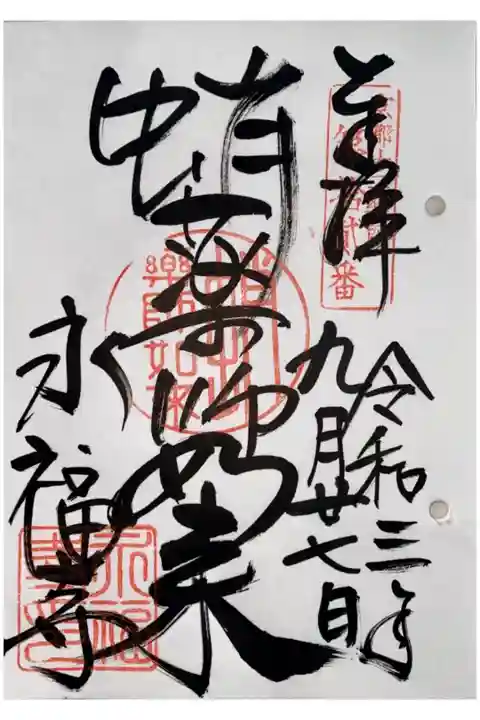 奉拝
令和三年
九月廿七日
蛸薬師如来
永福寺